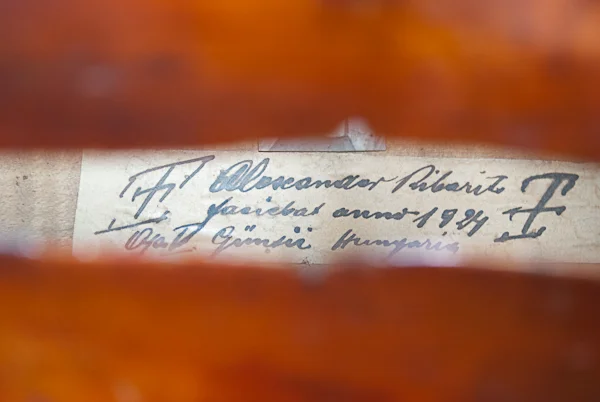 Alexander Ribarits
faciebat anno 1924
Günsii Hungaria